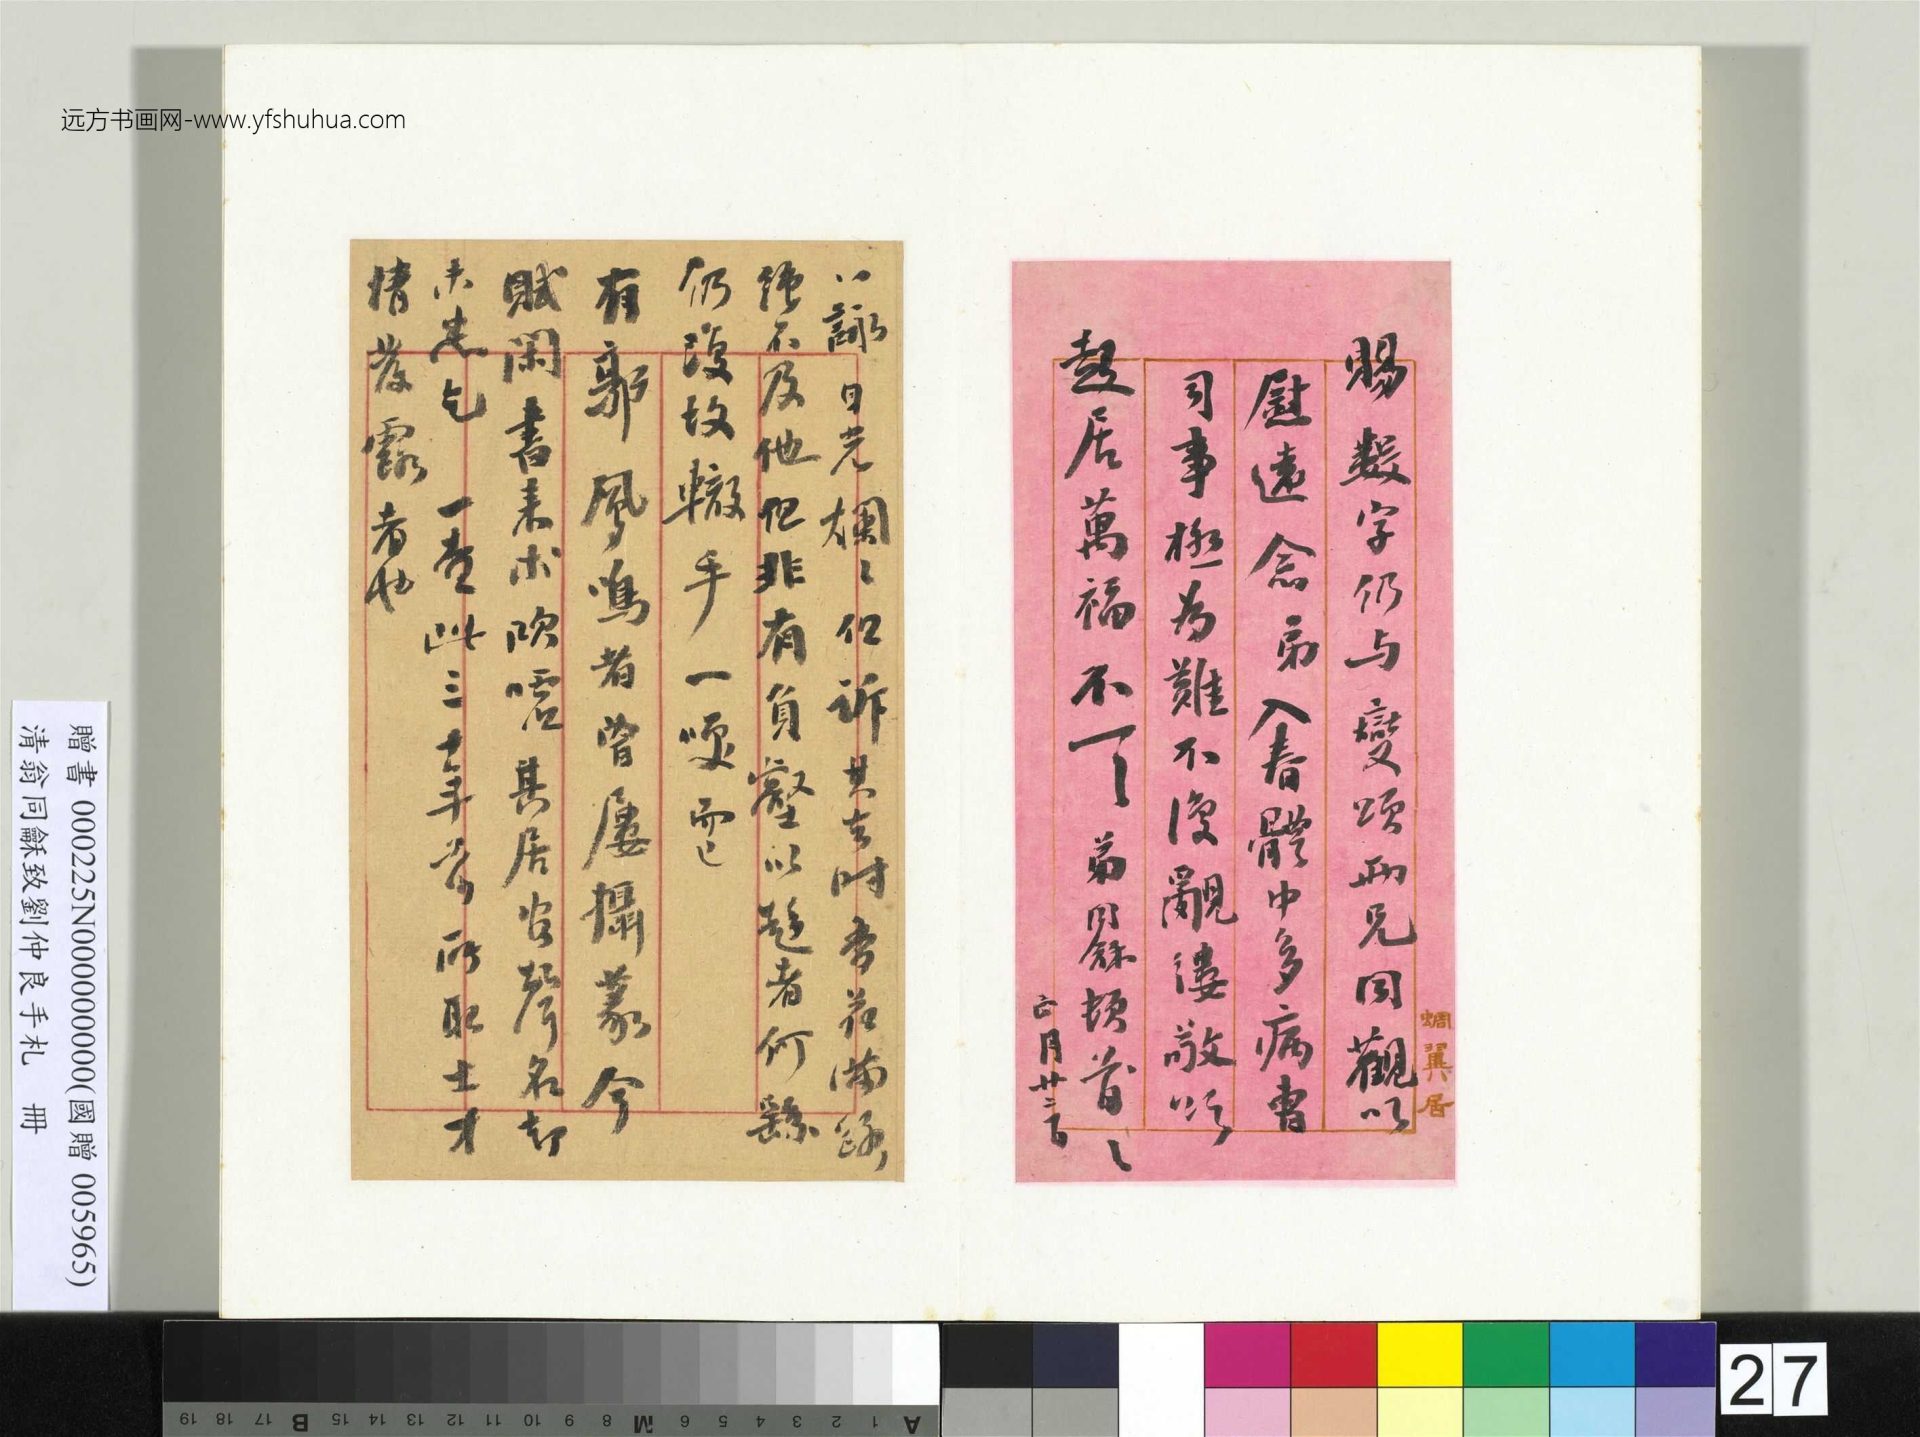 远方书画网-www.yfshuhua.com
賜數字仍与燮頌兩兄同觀以
慰遠念弟入春體中多病曹
司事極為難不復覼縷敬頌
起居萬福不一一 弟同龢頓首〻
正月廿二日
蜩翼居
八詠 日光爛〻但訴其去時杏花滿
強不及他但非有負壑以趨者何繇
仍復故轍手一嘆而已
有郭鳳鳴者曾屢攝篆今
賦閑書來求吹噓其居官聲名却
未惡也 一查此三十年前所取士才
情發露者也
贈書 000225N000000000(國贈 005965)
清翁同龢致劉仲良手札 冊
27
A 1 2 3 4 5 6 M 8 9 10 11 12 13 14 15 B 17 18 19